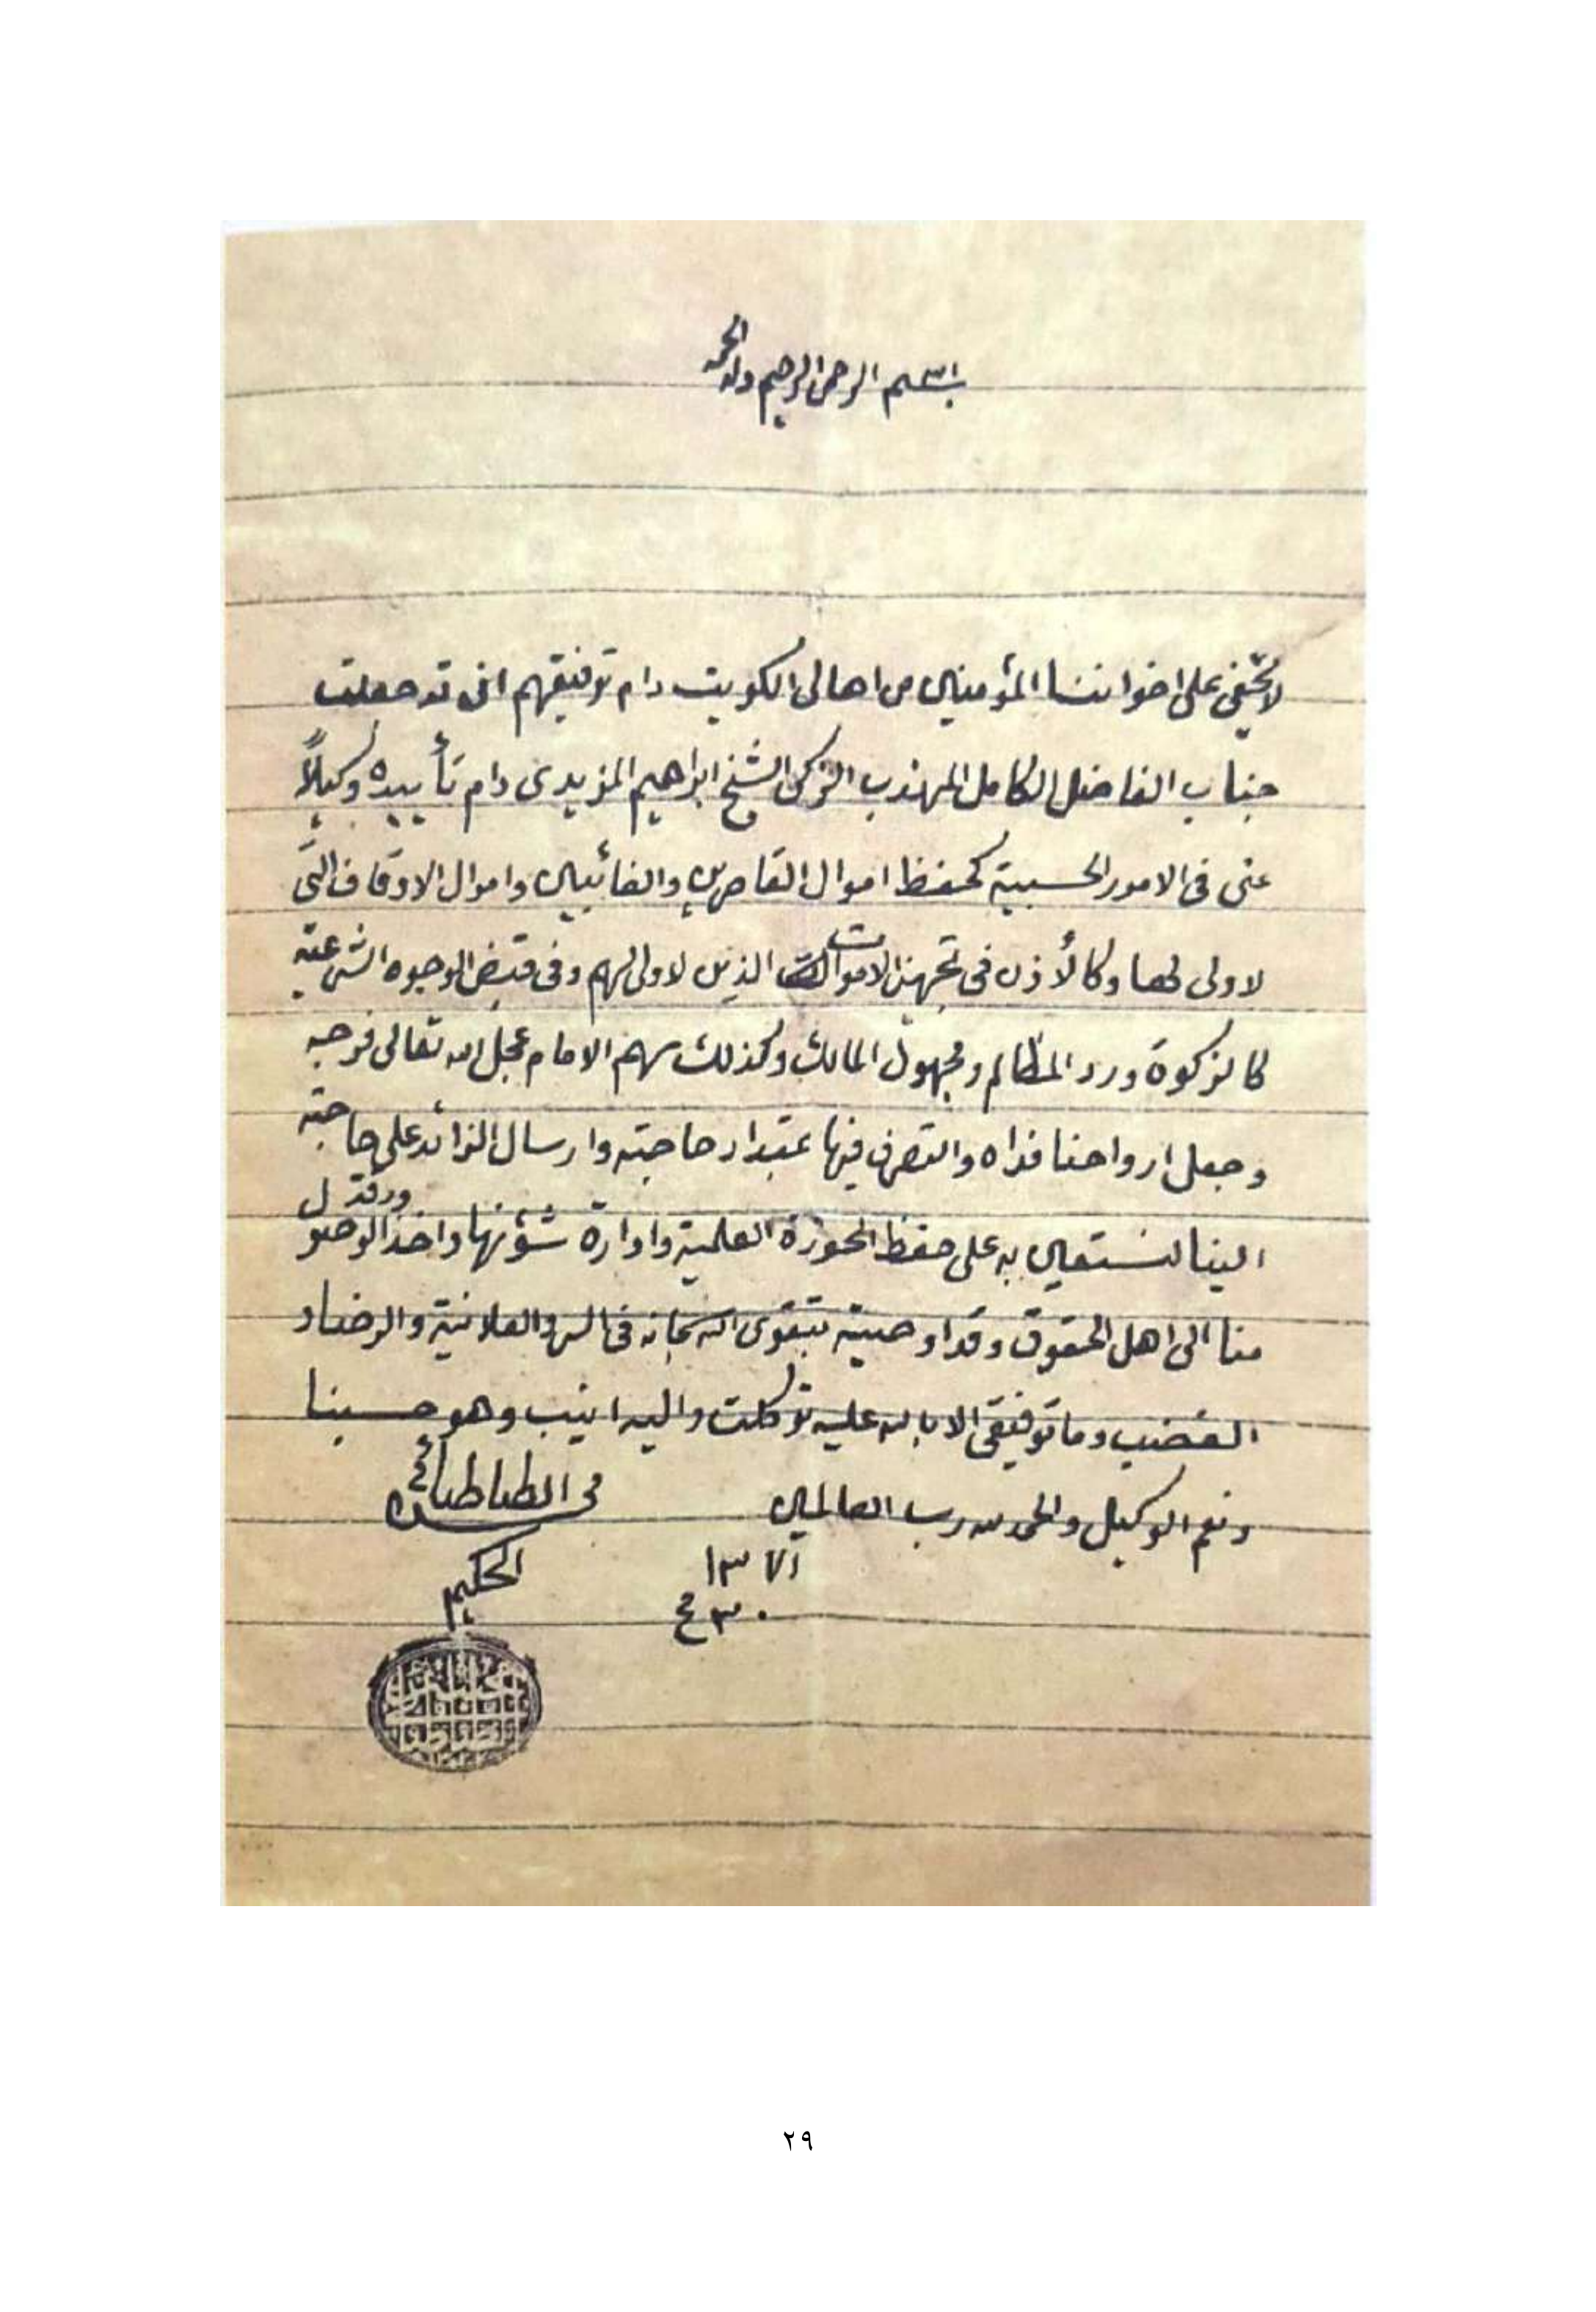 بسم الله الرحمن الرحيم وله الحمد
لا يخفى على اخواننا المؤمنين من اهالى الكويت دام توفيقهم انى قد جعلت
جناب الفاضل الكامل المهذب الزكى الشيخ ابراهيم المزيدى دام تأييده وكيلاً
عنى فى الامور الحسبية كحفظ اموال القاصرين والغائبين واموال الاوقاف التى
لا ولى لها وكالأذن فى تجهيز الاموات الذين لا ولى لهم وفى قبض الوجوه الشرعية
كالزكوة ورد المظالم ومجهول المالك وكذلك سهم الامام عجل الله تعالى فرجه
وجعل ارواحنا فداه والتصرف فيها بمقدار حاجته وارسال الزائد على حاجته
الينا لنستعين به على حفظ الحوزة العلمية وادارة شؤنها واخذ ورقة الوصول
منا الى اهل الحقوق وقد اوصيته بتقوى الله سبحانه فى السر والعلانية والرضا و
الغضب وما توفيقى الا بالله عليه توكلت واليه انيب وهو حسبنا
ونعم الوكيل والحمد لله رب العالمين
الطباطبائى
الحكيم
٢٩